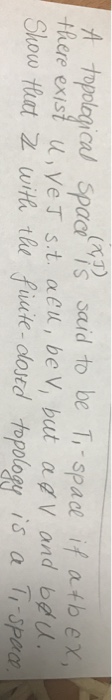 A topological space (X,J) is said to be T₁-space if a≠b ∈ X,
there exist U, V ∈ J s.t. a∈U, b∈V, but a∉V and b∉U.
Show that Z with the finite-closed topology is a T₁-space.